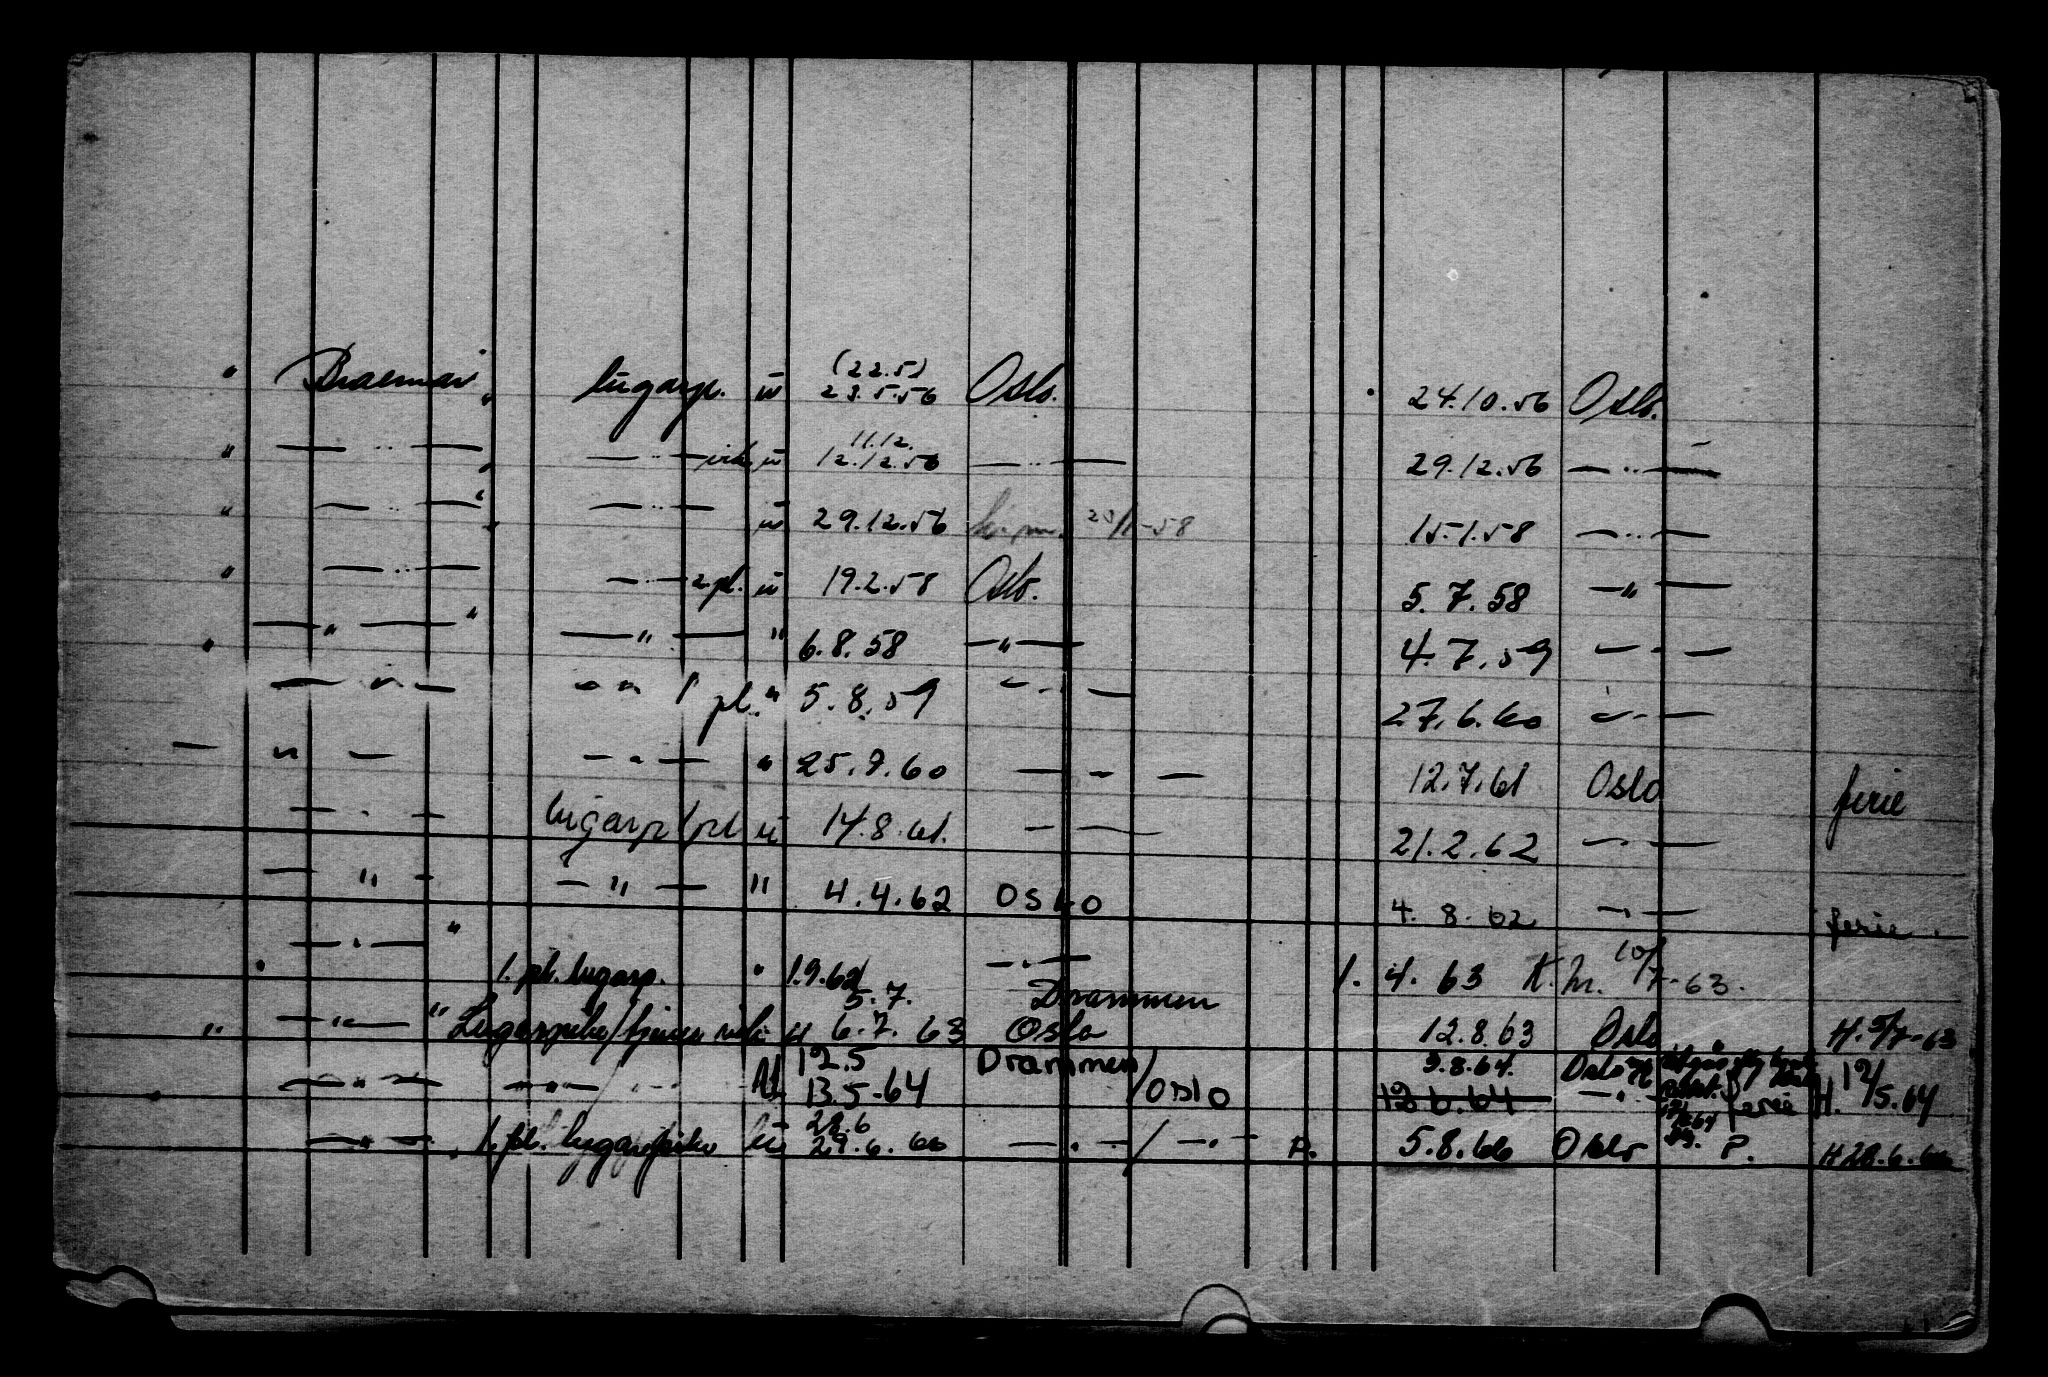 " Braemar " lugarp. u (22.5) 23.5.56 Oslo. 24.10.56 Oslo.
" — " — " — " — vik u 11.12. 12.12.56 — " — 29.12.56 — " —
" — " — " — " — u 29.12.56 20/1-58 15.1.58 — " —
" — " — — " — 2.pl. u 19.2.58 Oslo. 5.7.58 — " —
" — " — " — " — " 6.8.58 — " — 4.7.59 — " —
— " — — " — 1 pl. " 5.8.59 — " — 27.6.60 — " —
— " — — " — " 25.7.60 — " — 12.7.61 Oslo ferie
— " — lugarp 1 pl u 14.8.61. — " — 21.2.62 — " —
— " — — " — " 4.4.62 Oslo 4.8.62 — " — ferie.
— " — " 1. pl. lugarp. " 1.9.62 — " — 1. 4. 63 K.m. 10/7-63.
" — " — " Lugarpike/ u 5.7. 6.7.63 Drammen Oslo 12.8.63 Oslo H. 5/7-63
— " — — " — U 12.5 13.5-64 Drammen/Oslo 9.8.64. Oslo ferie H. 12/5.64
— " — 1. pl. lugarpike u 28.6 29.6.66 — " — / — " — P. 5.8.66 Oslo P. H 28.6.66